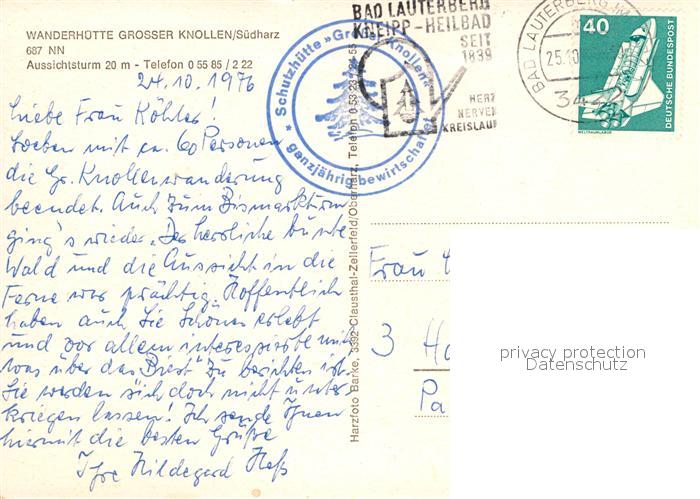 WANDERHÜTTE GROSSER KNOLLEN/Südharz
687 NN
Aussichtsturm 20 m - Telefon 0 55 85 / 2 22
24.10.1976
Liebe Frau Köhler!
Soeben mit ca. 60 Personen
die Gr. Knollenwanderung
beendet. Auch zum Bismarkturm
ging's wieder. Der herrliche bunte
Wald und die Aussicht in die
Ferne war prächtig. Hoffentlich
haben auch Sie Schönes erlebt
und vor allem interessierte mich
was über das zu berichten ist.
Sie werden sich doch nicht unter-
kriegen lassen! Ich sende Ihnen
hiermit die besten Grüße
Ihre Hildegard Heß
Schutzhütte »Großer Knollen«
ganzjährig bewirtschaftet
Harzfoto Barke, 3392 Clausthal-Zellerfeld/Oberharz, Telefon 0 53 23
BAD LAUTERBERG
KNEIPP-HEILBAD
SEIT
1839
HERZ
NERVEN
KREISLAUF
BAD LAUTERBERG
25.10
34
40
DEUTSCHE BUNDESPOST
WELTRAUMLABOR
Frau
3
privacy protection
Datenschutz